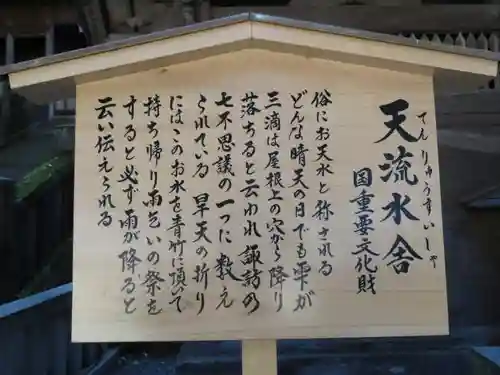 天流水舎
てんりゅうすいしゃ
国重要文化財
俗にお天水と称される
どんな晴天の日でも雫が
三滴は屋根上の穴から降り
落ちると云われ諏訪の
七不思議の一つに数え
られている 旱天の折り
にはこのお水を青竹に頂いて
持ち帰り雨乞いの祭を
すると必ず雨が降ると
云い伝えられる